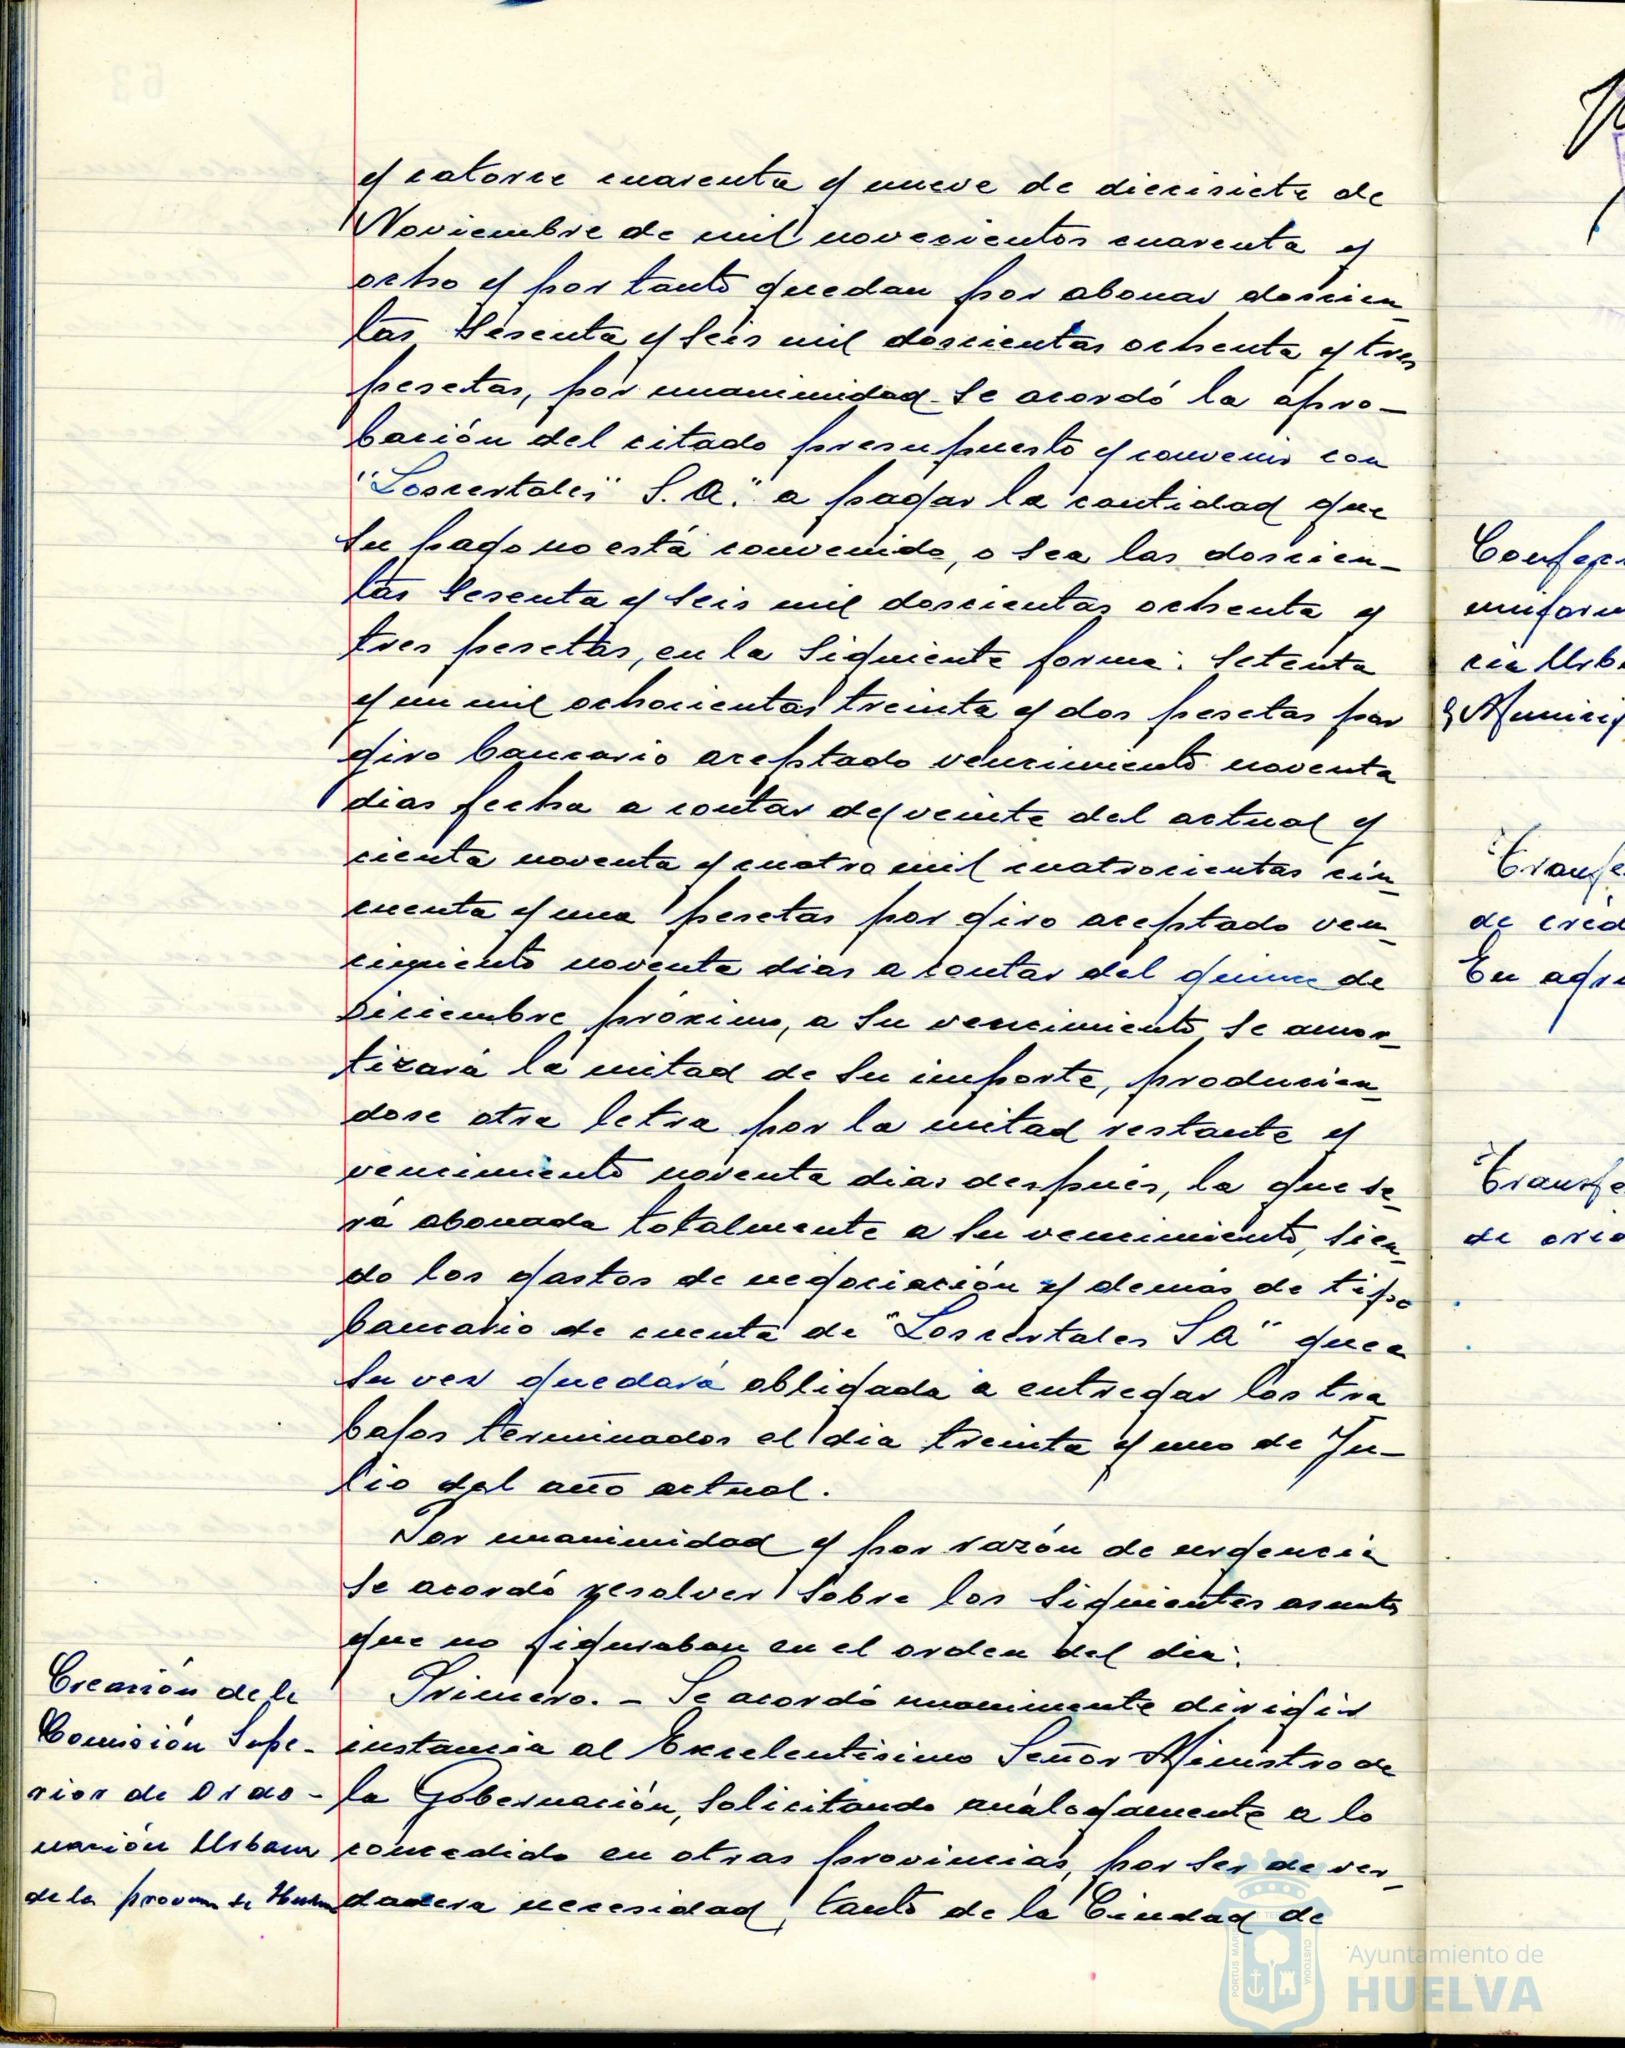 y catorce cuarenta y nueve de diecisiete de
Noviembre de mil novecientos cuarenta y
ocho y por tanto quedan por abonar doscien-
tas sesenta y seis mil doscientas ochenta y tres
pesetas, por unanimidad se acordó la apro-
bación del citado presupuesto y convenir con
"Loscertales" S.A." a pagar la cantidad que
su pago no está convenido, o sea las doscien-
tas sesenta y seis mil doscientas ochenta y
tres pesetas, en la siguiente forma: setenta
y un mil ochocientas treinta y dos pesetas por
giro bancario aceptado vencimiento noventa
dias fecha a contar del veinte del actual y
cienta noventa y cuatro mil cuatrocientas cin-
cuenta y una pesetas por giro aceptado ven-
cimiento noventa dias a contar del quince de
Diciembre próximo, a su vencimiento se amor-
tizará la mitad de su importe, producien-
dose otra letra por la mitad restante y
vencimiento noventa dias después, la que se-
rá abonada totalmente a su vencimiento, sien-
do los gastos de negociación y demás de tipo
bancario de cuenta de "Loscertales S A" que a
su vez quedará obligada a entregar los tra
bajos terminados el dia treinta y uno de Ju-
lio del año actual.
Por unanimidad y por razón de urgencia
se acordó resolver sobre los siguientes asuntos
que no figuraban en el orden del dia:
Creación de la
Comisión Supe-
rior de Ordo-
nación Urbana
de la provin de Huelva
Primero. - Se acordó unanimente dirigir
instancia al Excelentísimo Señor Ministro de
la Gobernación, solicitando análogamente a lo
concedido en otras provincias, por ser de ver-
dadera necesidad, tanto de la Ciudad de
Confec
uniform
cia Urba
y Municip
Transfe
de créd
En agru
Transfe
de créd
PORTUS MARIS
CUSTODIA
Ayuntamiento de
HUELVA